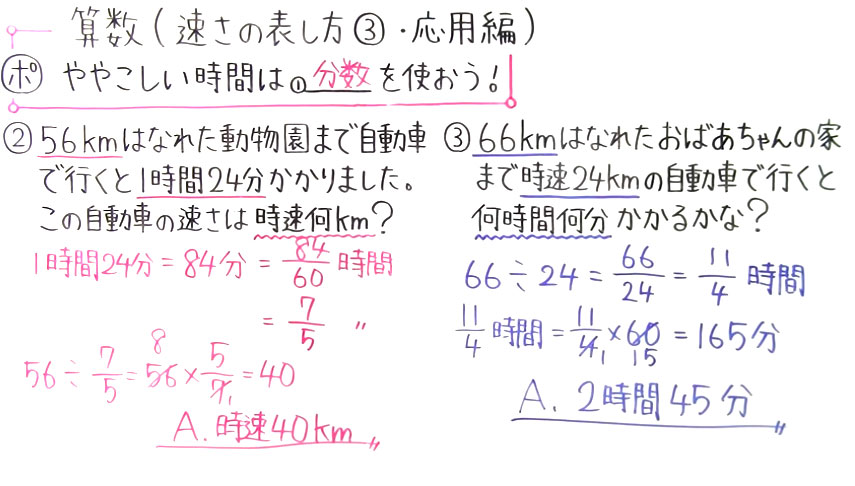 算数(速さの表し方③・応用編)
ポ ややこしい時間は①分数を使おう!
②56kmはなれた動物園まで自動車
で行くと1時間24分かかりました。
この自動車の速さは時速何km?
1時間24分=84分=84/60時間
=7/5 〃
56÷7/5=56×5/7=40
8 1
A.時速40km
③66kmはなれたおばあちゃんの家
まで時速24kmの自動車で行くと
何時間何分かかるかな?
66÷24=66/24=11/4時間
11/4時間=11/4×60=165分
1 15
A.2時間45分